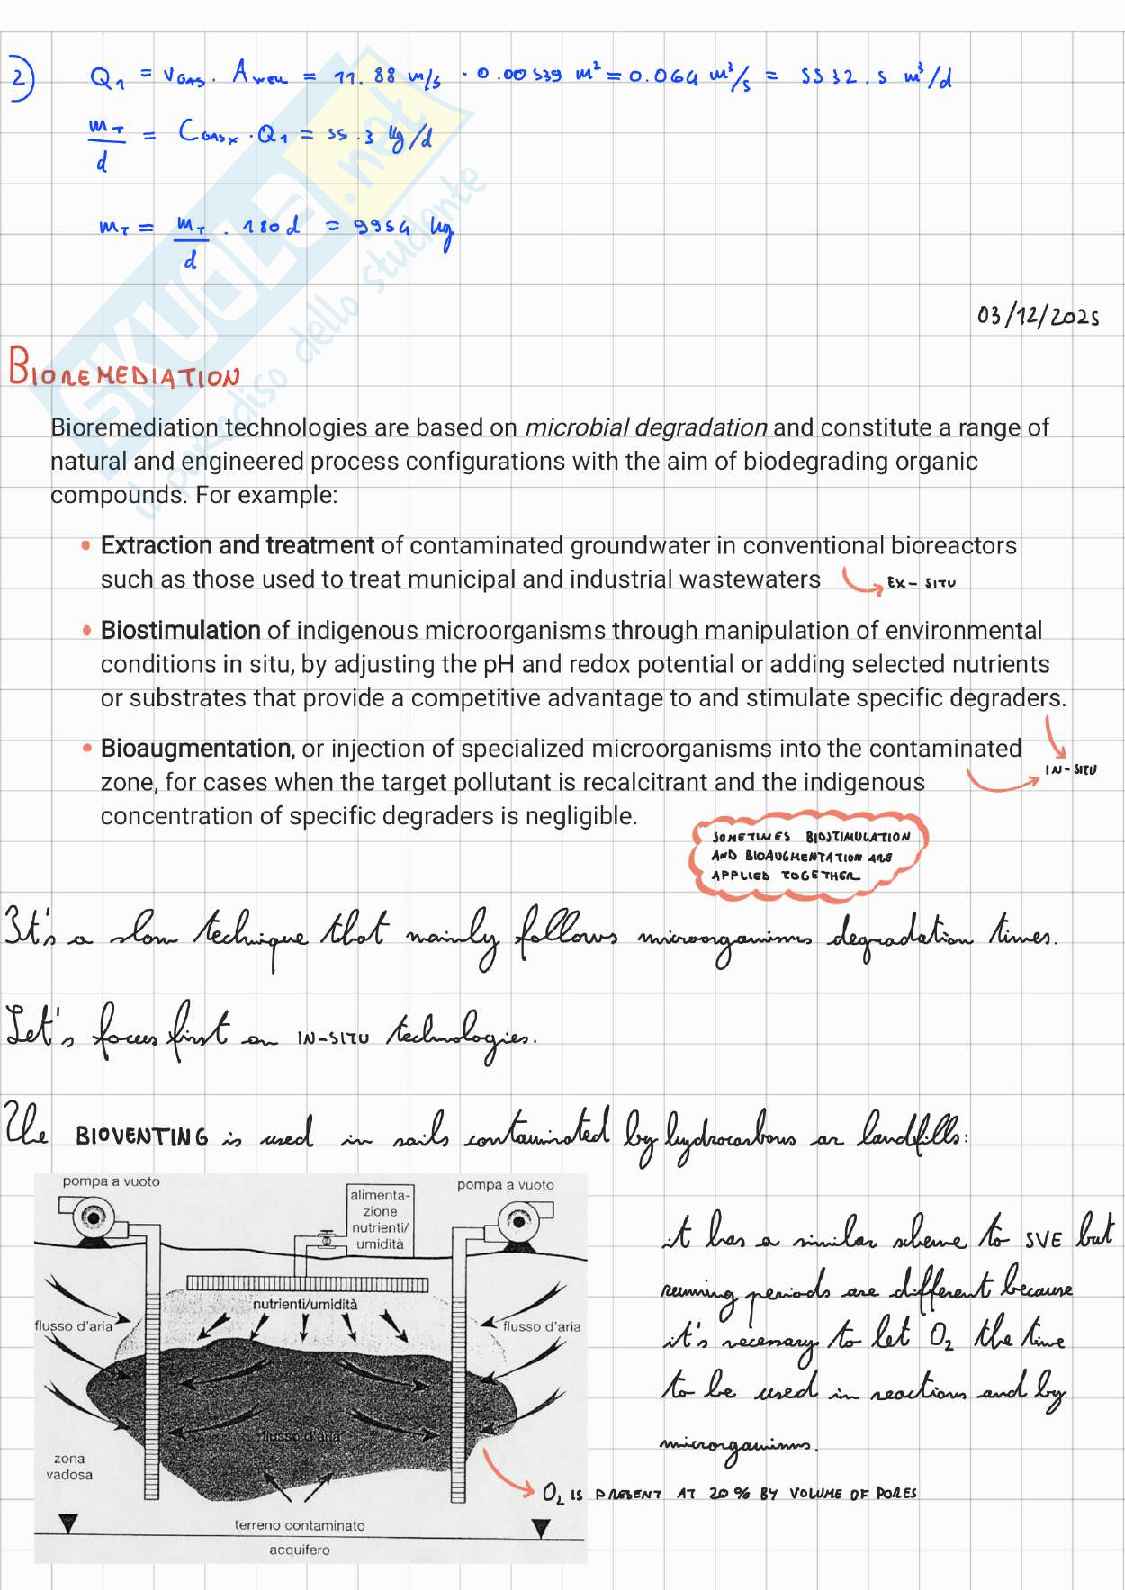 2) Q₁ = v_GAS · A_WELL = 11.88 m/s · 0.00539 m² = 0.064 m³/s = 5532.5 m³/d
m_T/d = C_GAS,x · Q₁ = 55.3 kg/d
m_T = m_T/d · 180 d = 9954 kg
SKUOLA.net
il paradiso dello studente
03/12/2025
BIOREMEDIATION
Bioremediation technologies are based on microbial degradation and constitute a range of
natural and engineered process configurations with the aim of biodegrading organic
compounds. For example:
• Extraction and treatment of contaminated groundwater in conventional bioreactors
such as those used to treat municipal and industrial wastewaters
EX-SITU
• Biostimulation of indigenous microorganisms through manipulation of environmental
conditions in situ, by adjusting the pH and redox potential or adding selected nutrients
or substrates that provide a competitive advantage to and stimulate specific degraders.
• Bioaugmentation, or injection of specialized microorganisms into the contaminated
zone, for cases when the target pollutant is recalcitrant and the indigenous
concentration of specific degraders is negligible.
IN-SITU
SOMETIMES BIOSTIMULATION
AND BIOAUGMENTATION ARE
APPLIED TOGETHER
It's a slow technique that mainly follows microorganisms degradation times.
Let's focus first on IN-SITU technologies.
The BIOVENTING is used in soils contaminated by hydrocarbons or landfills:
pompa a vuoto
alimenta-
zione
nutrienti/
umidità
pompa a vuoto
nutrienti/umidità
flusso d'aria
flusso d'aria
flusso d'aria
zona
vadosa
terreno contaminato
acquifero
it has a similar scheme to SVE but
running periods are different because
it's necessary to let O₂ the time
to be used in reactions and by
microrganisms.
O₂ IS PRESENT AT 20% BY VOLUME OF PORES